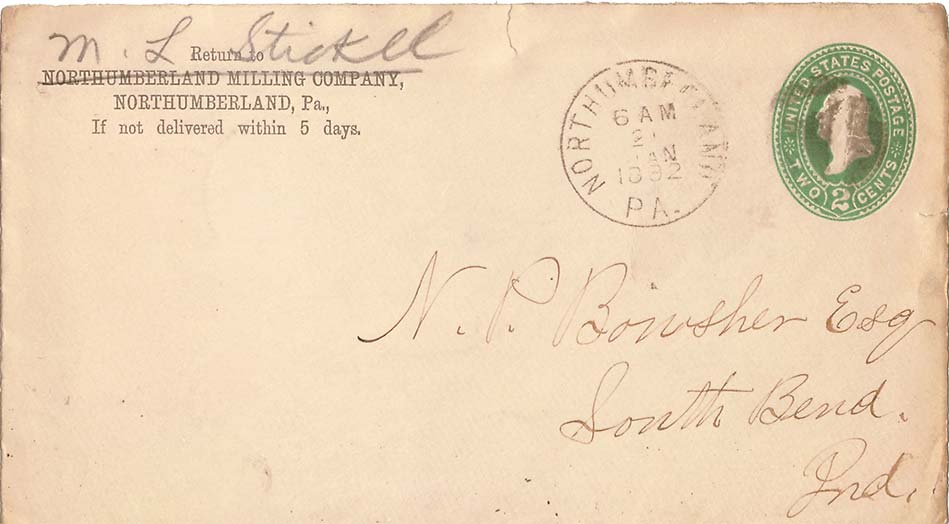 M. L. Stickel
Return to
NORTHUMBERLAND MILLING COMPANY,
NORTHUMBERLAND, Pa.,
If not delivered within 5 days.
NORTHUMBERLAND
6 AM
JAN
1892
PA.
UNITED STATES POSTAGE
TWO 2 CENTS
N. P. Bowsher Esq
South Bend.
Ind.